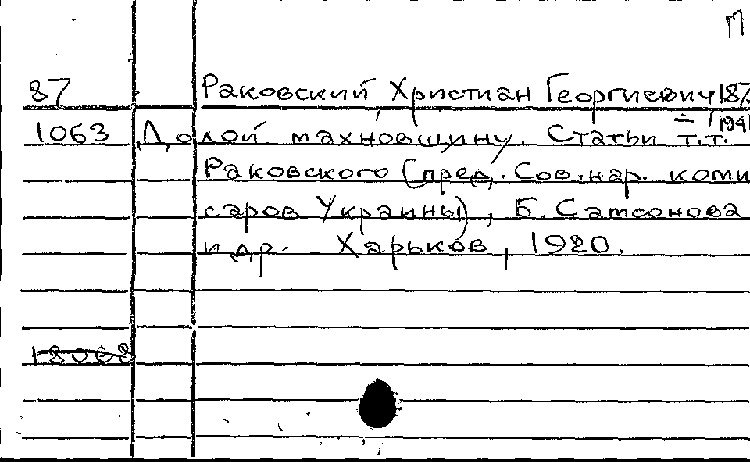 П
87 Раковский Христиан Георгиевич 187
1941
1063 Долой махновщину. Статьи т.т.
Раковского (пред. Сов. нар. коми
саров Украины), Б. Самсонова
и др. Харьков, 1920.
18068